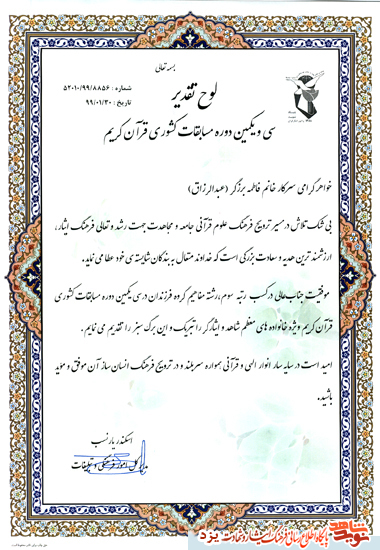 بسمه تعالی
لوح تقدیر
شماره : ۵۲۰۱۰/۹۹/۸۸۵۶
تاریخ : ۹۹/۰۱/۳۰
سی و یکمین دوره مسابقات کشوری قرآن کریم
خواهر گرامی سرکار خانم فاطمه برزگر (عبدالرزاق)
بی شک تلاش در مسیر ترویج فرهنگ علوم قرآنی جامعه و مجاهدت جهت رشد و تعالی فرهنگ ایثار،
ارزشمند ترین هدیه و سعادت بزرگی است که خداوند متعال به بندگان شایسته ی خود عطا می نماید.
موفقیت جنابعالی در کسب رتبه سوم، رشته مفاهیم گروه فرزندان در سی یکمین دوره مسابقات کشوری
قرآن کریم ویژه خانواده های معظم شاهد و ایثارگر را تبریک و این برگ سبز را تقدیم می نمایم.
امید است در سایه سار انوار الهی و قرآنی همواره سربلند و در ترویج فرهنگ انسان ساز آن موفق و مؤید
باشید.
اسکندر یارنسب
مدیر کل امور فرهنگی و تبلیغات
نوید شاهد
پایگاه اطلاع رسانی فرهنگ ایثار و شهادت یزد